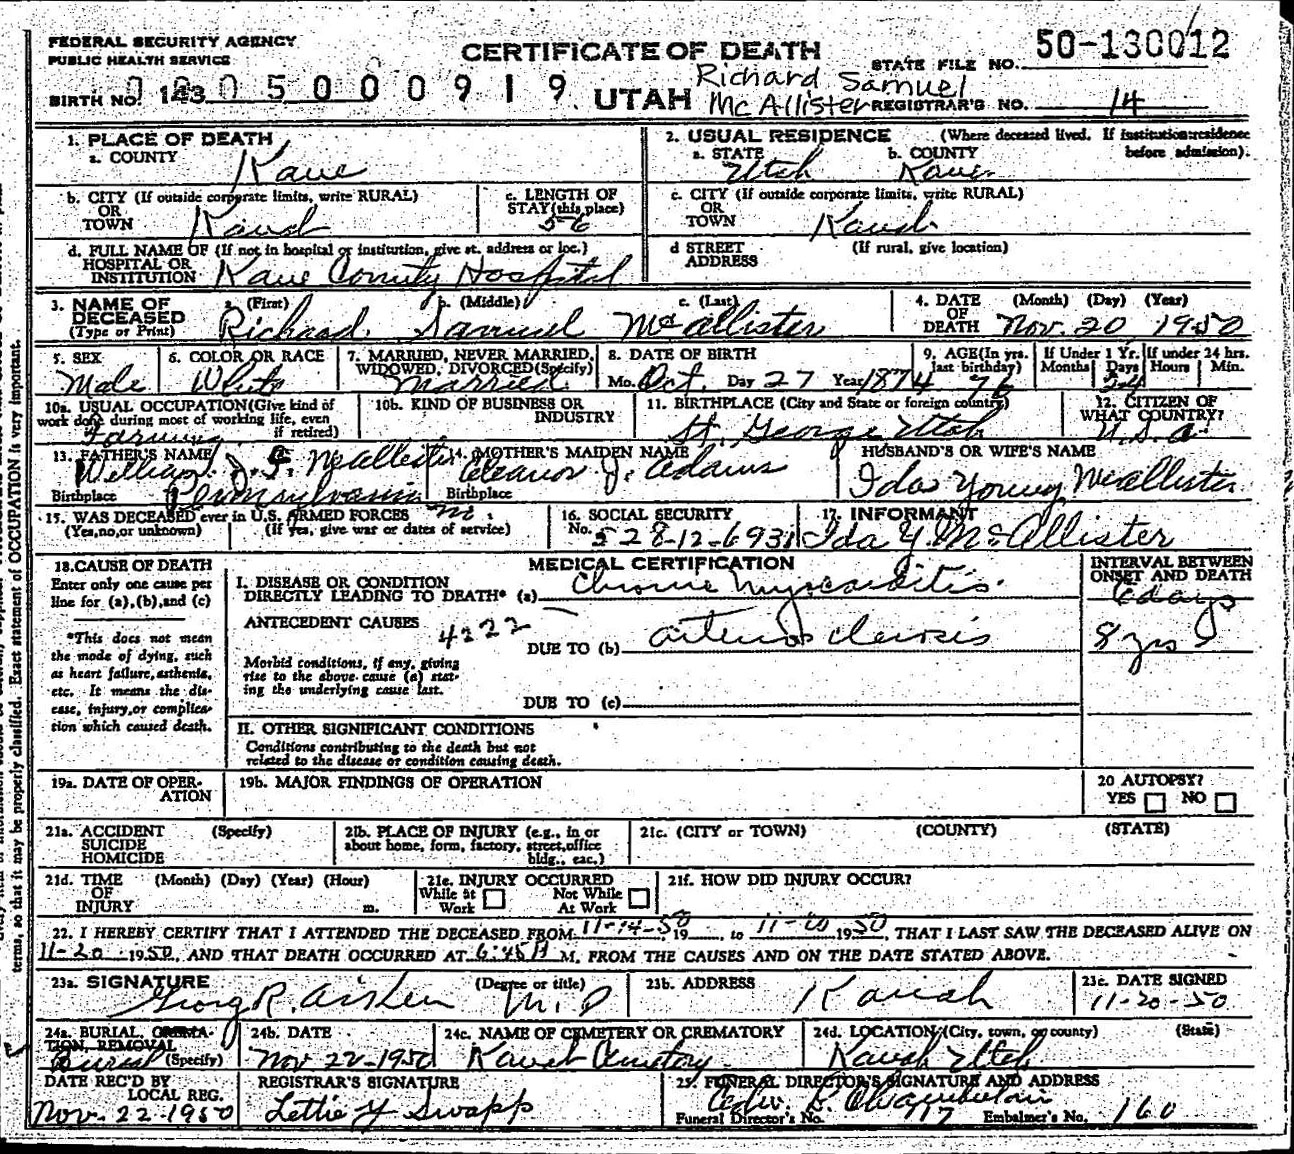 FEDERAL SECURITY AGENCY
PUBLIC HEALTH SERVICE
CERTIFICATE OF DEATH
STATE FILE NO. 50-130012
BIRTH NO. 143 0 5 0 0 0 9 1 9
UTAH
Richard Samuel
McAllister
REGISTRAR'S NO. 14
1. PLACE OF DEATH
a. COUNTY Kane
2. USUAL RESIDENCE (Where deceased lived. If institution: residence before admission).
a. STATE Utah b. COUNTY Kane
b. CITY (If outside corporate limits, write RURAL)
OR
TOWN Kanab
c. LENGTH OF
STAY (this place)
56
c. CITY (If outside corporate limits, write RURAL)
OR
TOWN Kanab
d. FULL NAME OF (If not in hospital or institution, give st. address or loc.)
HOSPITAL OR
INSTITUTION Kane County Hospital
d STREET
ADDRESS
(If rural, give location)
3. NAME OF
DECEASED
(Type or Print)
a. (First) b. (Middle) c. (Last)
Richard Samuel McAllister
4. DATE
OF
DEATH
(Month) (Day) (Year)
Nov. 20 1950
5. SEX
Male
6. COLOR OR RACE
White
7. MARRIED, NEVER MARRIED,
WIDOWED, DIVORCED (Specify)
Married
8. DATE OF BIRTH
Mo. Oct. Day 27 Year 1874
9. AGE (In yrs.
last birthday)
76
If Under 1 Yr.
Months Days
24
If under 24 hrs.
Hours Min.
10a. USUAL OCCUPATION (Give kind of
work done during most of working life, even
if retired)
Farming
10b. KIND OF BUSINESS OR
INDUSTRY
11. BIRTHPLACE (City and State or foreign country)
St. George Utah
12. CITIZEN OF
WHAT COUNTRY?
U.S.A.
13. FATHER'S NAME
William J. F. McAllister
Birthplace Pennsylvania
14. MOTHER'S MAIDEN NAME
Eleanor J. Adams
Birthplace
HUSBAND'S OR WIFE'S NAME
Ida Young McAllister
15. WAS DECEASED ever in U.S. ARMED FORCES no.
(Yes, no, or unknown) (If yes, give war or dates of service)
16. SOCIAL SECURITY
No. 528-12-6931
17. INFORMANT
Ida Y. McAllister
18. CAUSE OF DEATH
Enter only one cause per
line for (a), (b), and (c)
*This does not mean
the mode of dying, such
as heart failure, asthenia,
etc. It means the dis-
ease, injury, or complica-
tion which caused death.
MEDICAL CERTIFICATION
I. DISEASE OR CONDITION
DIRECTLY LEADING TO DEATH* (a) Chronic Myocarditis
ANTECEDENT CAUSES 4222
DUE TO (b) arteriosclerosis
Morbid conditions, if any, giving
rise to the above cause (a) stat-
ing the underlying cause last.
DUE TO (c)
INTERVAL BETWEEN
ONSET AND DEATH
6 days
8 yrs
II. OTHER SIGNIFICANT CONDITIONS
Conditions contributing to the death but not
related to the disease or condition causing death.
19a. DATE OF OPER-
ATION
19b. MAJOR FINDINGS OF OPERATION
20 AUTOPSY?
YES NO
21a. ACCIDENT (Specify)
SUICIDE
HOMICIDE
21b. PLACE OF INJURY (e.g., in or
about home, form, factory, street, office
bldg., eac.)
21c. (CITY or TOWN) (COUNTY) (STATE)
21d. TIME (Month) (Day) (Year) (Hour)
OF
INJURY m.
21e. INJURY OCCURRED
While at
Work
Not While
At Work
21f. HOW DID INJURY OCCUR?
22. I HEREBY CERTIFY THAT I ATTENDED THE DECEASED FROM 11-14-50, 19__, to 11-20 1950, THAT I LAST SAW THE DECEASED ALIVE ON
11-20 1950, AND THAT DEATH OCCURRED AT 6:45A M. FROM THE CAUSES AND ON THE DATE STATED ABOVE.
23a. SIGNATURE (Degree or title)
George R. Aiken M.D
23b. ADDRESS
Kanab
23c. DATE SIGNED
11-20-50
24a. BURIAL, CREMA-
TION, REMOVAL
Burial (Specify)
24b. DATE
Nov 22-1950
24c. NAME OF CEMETERY OR CREMATORY
Kanab Cemetery
24d. LOCATION (City, town, or county) (State)
Kanab Utah
DATE REC'D BY
LOCAL REG.
Nov. 22-1950
REGISTRAR'S SIGNATURE
Lettie Y Swapp
25. FUNERAL DIRECTOR'S SIGNATURE AND ADDRESS
Chamberlain
Funeral Director's No. 717 Embalmer's No. 160
terms, so that it may be properly classified. Exact statement of OCCUPATION is very important.